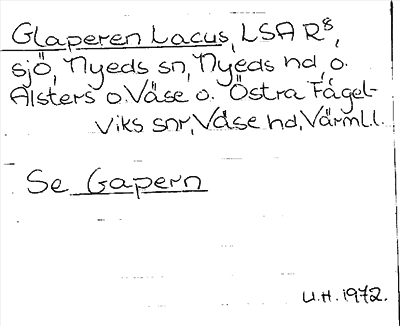 Glaperen Lacus, LSA R8,
sjö, Nyeds sn, Nyeds hd, o.
Alsters o. Väse o. Östra Fågel-
viks snr, Väse hd, Värml.l.
Se Gapern
U.H. 1972.